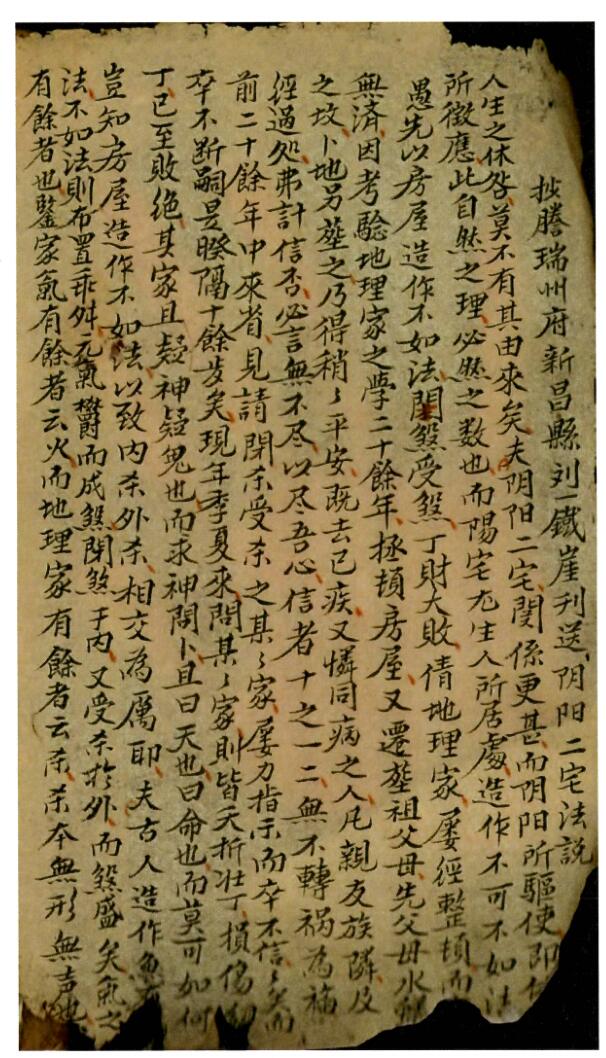 抄謄瑞州府新昌縣刘一鐵崖刋送阴阳二宅法説
人生之休咎莫不有其由來矣夫阴阳二宅関係更甚而阴阳所驅使即
所徵應此自然之理必然之数也而陽宅尤生人所居處造作不可不如法
愚先以房屋造作不如法閉煞受煞丁財大敗倩地理家屡經整頓而
無済因考驗地理家之學二十餘年拯頓房屋又遷塟祖父母先父母水
之坟卜地另塟之乃得稍〻平安既去已疾又憐同病之人凡親友族隣及
經過処弗計信否必言無不尽以尽吾心信者十之一二無不轉禍為福
前二十餘年中來省見請閉杀受杀之某〻家屡力指示而卒不信〻而
卒不断嗣旻暌隔十餘岁矣現年季夏來問某〻家則皆夭折壮丁損傷
丁已至敗绝其家且疑神疑鬼也而求神問卜且曰天也曰命也而莫可如何
豈知房屋造作不如法以致内杀外杀相交為厲耶夫古人造作
法不如法則布置乖舛元氣欝而成煞閉煞于内又受杀於外而煞盛矣氣之
有餘者也鑒家氣有餘者云火而地理家有餘者云杀杀本無形無声也